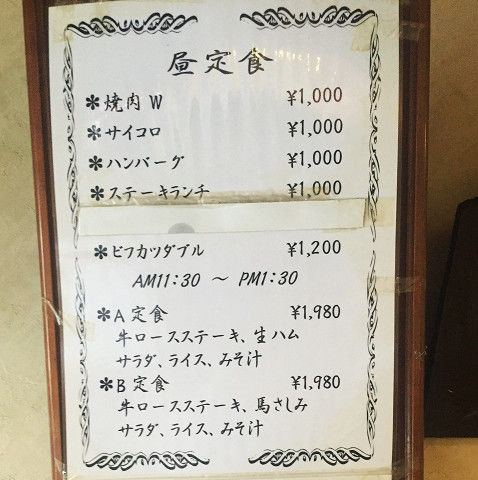 昼定食
✻焼肉W ¥1,000
✻サイコロ ¥1,000
✻ハンバーグ ¥1,000
✻ステーキランチ ¥1,000
✻ビフカツダブル ¥1,200
AM11:30 ～ PM1:30
✻A定食 ¥1,980
牛ロースステーキ、生ハム
サラダ、ライス、みそ汁
✻B定食 ¥1,980
牛ロースステーキ、馬さしみ
サラダ、ライス、みそ汁